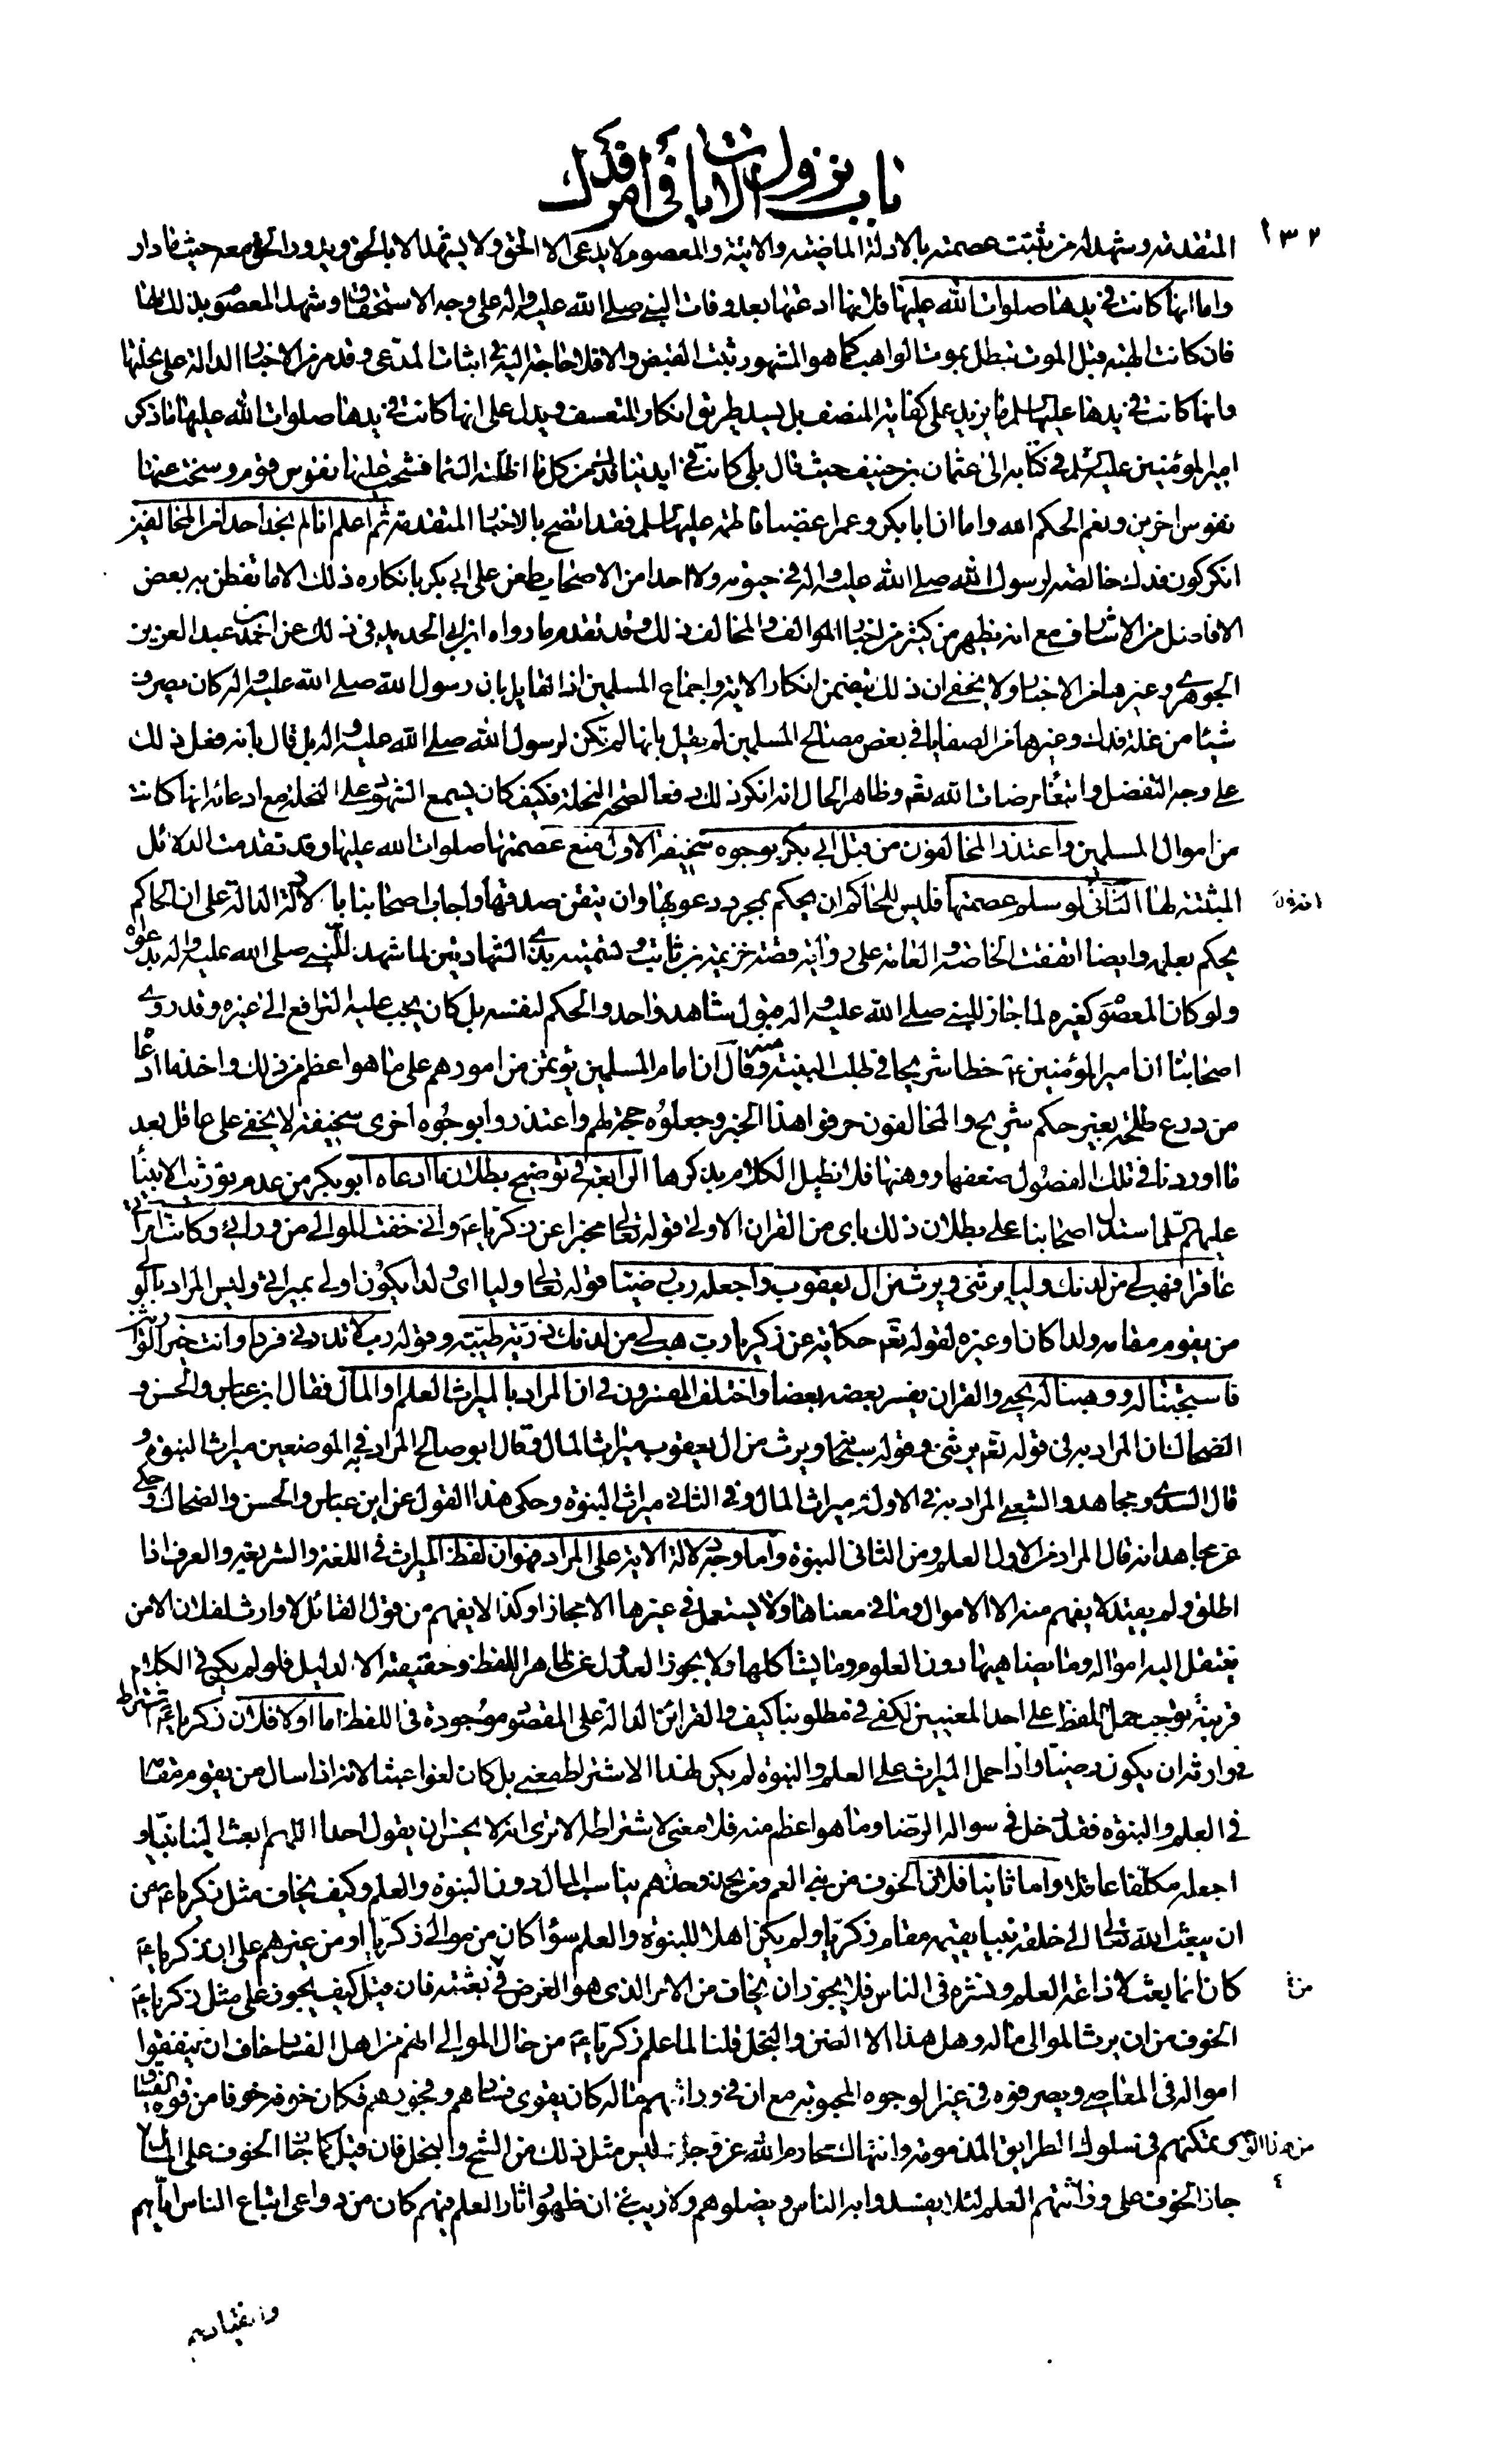 باب نزول الآيات في امر فدك
١٣٢
المتقدمة وشهد له من ثبتت عصمته بالادلة الماضية والاتية والمعصوم لا يدعى الا الحق ولا يشهد الا بالحق ويدور الحق معه حيثما دار
واما انها كانت في يدها صلوات الله عليها فلانها ادعتها بعد وفات النبي صلى الله عليه واله على وجه الاستحقاق وشهد المعصوم بذلك لها
فان كانت الهبة قبل الموت تبطل بموت الواهب كما هو المشهور ثبت القبض والا فلا حاجة اليه في اثبات المدعى وقد مر من الاخبار الدالة على نحلتها
وانها كانت في يدها عليها السلم ما يزيد على كفاية المنصف بل يسد طريق انكار المتعسف ويدل على انها كانت في يدها صلوات الله عليها ما ذكر
امير المؤمنين عليه السلم في كتابه الى عثمان بن حنيف حيث قال بلى كانت في ايدينا فدك من كل ما اظلته السماء فشحت عليها نفوس قوم وسخت عنها
نفوس اخرين ونعم الحكم الله واما ان ابا بكر وعمر اغضبا فاطمة عليها السلم فقد اتضح بالاخبار المتقدمة ثم اعلم انا لم نجد احدا من المخالفين
انكر كون فدك خالصة لرسول الله صلى الله عليه واله في حيوته ولا احدا من الاصحاب طعن على ابي بكر بانكاره ذلك الا ما تفطن به بعض
الافاضل من الاشارف مع انه يظهر من كثير من اخبار الموالف والمخالف ذلك وقد تقدم ما رواه ابن ابي الحديد في ذلك عن احمد بن عبد العزيز
الجوهري وغيرها من الاخبار ولا يخفى ان ذلك يتضمن انكار الاية واجماع المسلمين اذ القايل بان رسول الله صلى الله عليه واله كان يصرف
شيئا من غلة فدك وغيرها من الصفايا في بعض مصالح المسلمين لم يقل بانها لم تكن لرسول الله صلى الله عليه واله بل قال بانه فعل ذلك
على وجه التفضل وابتغاء مرضات الله تعم وظاهر الحال انه انكر ذلك دفعا لصحة النحلة فكيف كان يسمع الشهود على النحلة مع ادعائه انها كانت
من اموال المسلمين واعتذر المخالفون من قبل ابي بكر بوجوه سخيفة الاول منع عصمتها صلوات الله عليها وقد تقدمت الدلائل
المثبتة لها الثاني لو سلم عصمتها فليس للحاكم ان يحكم بمجرد دعويها وان تيقن صدقها واجاب اصحابنا بالادلة الدالة على ان الحاكم
يحكم بعلمه وايضا اتفقت الخاصة والعامة على رواية قصة خزيمة بن ثابت وتسميته بذي الشهادتين لما شهد للنبي صلى الله عليه واله بدعواه
ولو كان المعصوم كغيره لما جاز للنبي صلى الله عليه واله قبول شاهد واحد والحكم لنفسه بل كان يجب عليه الترافع الى غيره وقد روى
اصحابنا ان امير المؤمنين ع خطا شريحا في طلب البينة منه وقال ان امام المسلمين يؤتمن من امورهم على ما هو اعظم من ذلك واخذ ما ادعاه
من درع طلحة بغير حكم شريح والمخالفون حرفوا هذا الخبر وجعلوه حجة لهم واعتذروا بوجوه اخرى سخيفة لا يخفى على عاقل بعد
ما اوردنا في تلك الفصول ضعفها ووهنها فلا نطيل الكلام بذكرها الرابعة في توضيح بطلان ما ادعاه ابو بكر من عدم توريث الانبياء
عليهم السلم استدل اصحابنا على بطلان ذلك باي من القران الاولى قوله تعالى مخبرا عن زكريا ع واني خفت الموالي من ورائي وكانت امراتي
عاقرا فهب لي من لدنك وليا يرثني ويرث من ال يعقوب واجعله رب رضيا قوله تعالى وليا اي ولدا يكون اولى بميراثي وليس المراد بالولي
من يقوم مقامه ولدا كان او غيره لقوله تعم حكاية عن زكريا رب هب لي من لدنك ذرية طيبة وقوله رب لا تذرني فردا وانت خير الوارثين
فاستجبنا له ووهبنا له يحيى والقران يفسر بعضه بعضا واختلف المفسرون في ان المراد بالميراث العلم او المال فقال ابن عباس والحسن و
الضحاك ان المراد به في قوله تعم يرثني وقوله سبحانه ويرث من ال يعقوب ميراث المال وقال ابو صالح المراد به في الموضعين ميراث النبوة و
قال السدي ومجاهد والشعبي المراد به في الاول ميراث المال وفي الثاني ميراث النبوة وحكى هذا القول عن ابن عباس والحسن والضحاك وحكي
عن مجاهد انه قال المراد من الاول العلم ومن الثاني النبوة واما وجه دلالة الاية على المراد فهو ان لفظ الميراث في اللغة والشريعة والعرف اذا
اطلق ولم يقيد لا يفهم منه الا الاموال وما في معناها ولا يستعمل في غيرها الا مجازا وكذا لا يفهم من قول القائل لا وارث لفلان الا من
ينتقل اليه امواله وما يضاهيها دون العلوم وما يشاكلها ولا يجوز العدول عن ظاهر اللفظ وحقيقته الا لدليل فلو لم يكن في الكلام
قرينة توجب حمل اللفظ على احد المعنيين لكفى في مطلوبنا كيف والقرائن الدالة على المقصود موجودة في اللفظ اما اولا فلان زكريا ع اشترط
في وارثه ان يكون رضيا واذا حمل الميراث على العلم والنبوة لم يكن لهذا الاشتراط معنى بل كان لغوا عبثا لانه اذا سال من يقوم مقامه
في العلم والنبوة فقد دخل في سواله الرضا وما هو اعظم منه فلا معنى لاشتراطه الا ترى انه لا يحسن ان يقول احد اللهم ابعث الينا نبيا و
اجعله مكلفا عاقلا واما ثانيا فلان الخوف من بني العم ومن يحذو حذوهم يناسب المال دون النبوة والعلم وكيف يخاف مثل زكريا ع من
ان يبعث الله تعالى الى خلقه نبيا يقيمه مقام زكريا ولم يكن اهلا للنبوة والعلم سواء كان من موالي زكريا او من غيرهم على ان زكريا ع
كان انما بعث لاذاعة العلم ونشره في الناس فلا يجوز ان يخاف من الامر الذي هو الغرض في بعثته فان قيل كيف يجوز على مثل زكريا ع
الخوف من ان يرث الموالي ماله وهل هذا الا الضن والبخل قلنا لما علم زكريا ع من حال الموالي انهم من اهل الفساد خاف ان ينفقوا
امواله في المعاصي ويصرفوه في غير الوجوه المحبوبة مع ان في وراثتهم ماله كان يقوي فسادهم وفجورهم فكان خوفه خوفا من قوة الفساق
وتمكنهم في سلوك الطرايق المذمومة وانتهاك محارم الله عز وجل وليس مثل ذلك من الشح والبخل فان قيل كما جاز الخوف على المال
جاز الخوف على وراثتهم العلم لئلا يفسدوا به الناس ويضلوهم ولا ريب في ان ظهور اثار العلم فيهم كان من دواعي اتباع الناس اياهم
وانقيادهم